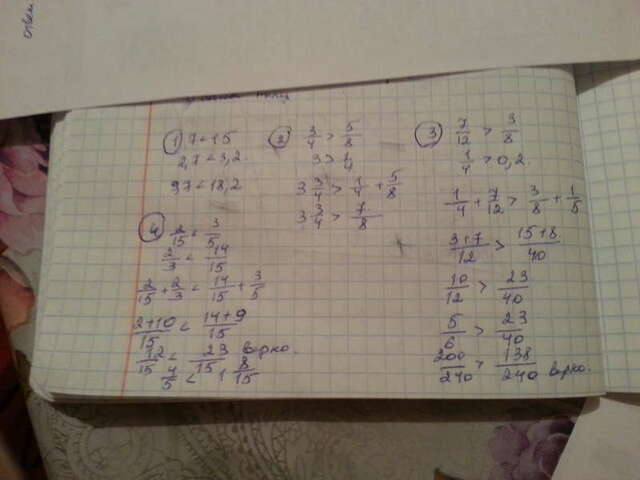 ответ
① 7 < 15
2,7 < 3,2
9,7 < 18,2
② 3/4 > 5/8
3 > 1/4
3 3/4 > 1/4 + 5/8
3 3/4 > 7/8
③ 7/12 > 3/8
1/4 > 0,2.
1/4 + 7/12 > 3/8 + 1/5
3+7/12 > 15+8/40
10/12 > 23/40
5/6 > 23/40
200/240 > 138/240 верно.
④ 2/15 < 3/5
2/3 < 14/15
2/15 + 2/3 < 14/15 + 3/5
2+10/15 < 14+9/15
12/15 < 23/15 верно.
4/5 < 1 8/15